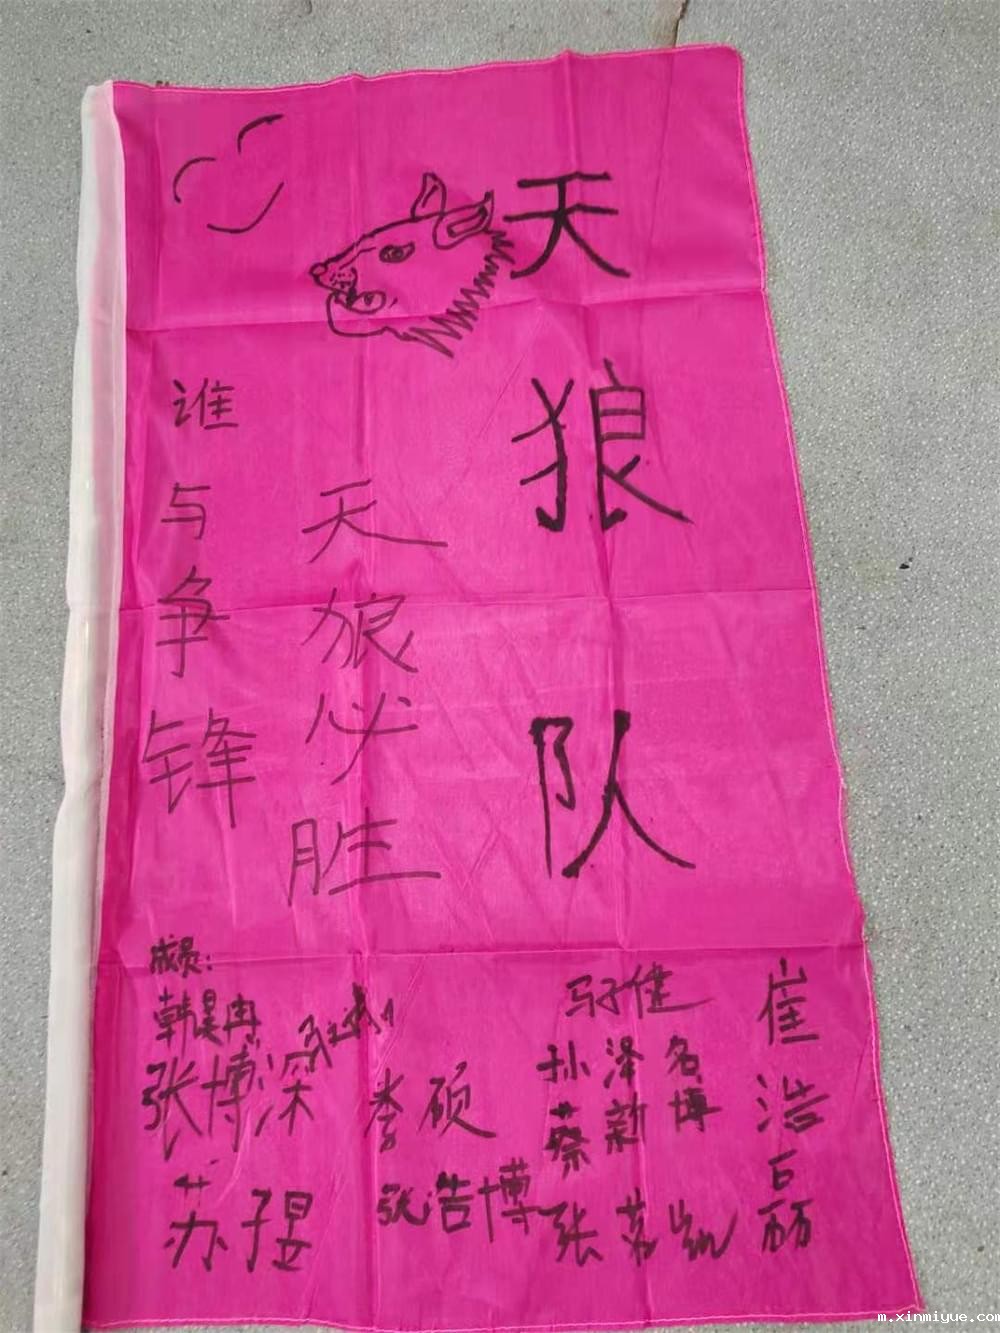 天狼队
天狼必胜
谁与争锋
成员:
韩昊冉
张博深
苏子
李硕
张浩博
马子健
孙泽名
蔡新博
张
崔浩
m.xinmiyue.com